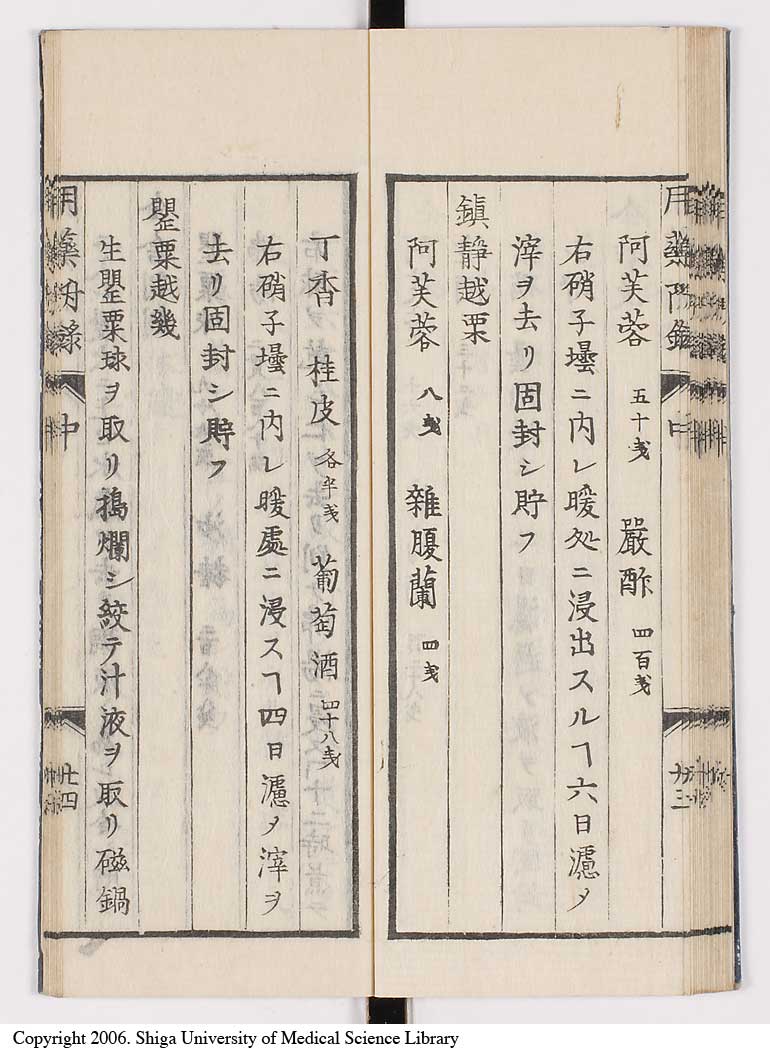 用藥 中 廿三
阿芙蓉 五十戔 嚴酢 四百戔
右硝子壜ニ内レ暖処ニ浸出スルヿ六日濾〆
滓ヲ去リ固封シ貯フ
鎮靜越栗
阿芙蓉 八戔 雜腹蘭 四戔
丁香 桂皮 各半戔 葡萄酒 四十八戔
右硝子壜ニ内レ暖處ニ浸スヿ四日濾〆滓ヲ
去リ固封シ貯フ
罌粟越幾
生罌粟球ヲ取リ搗爛シ絞テ汁液ヲ取リ磁鍋
用藥 中 廿四
Copyright 2006. Shiga University of Medical Science Library